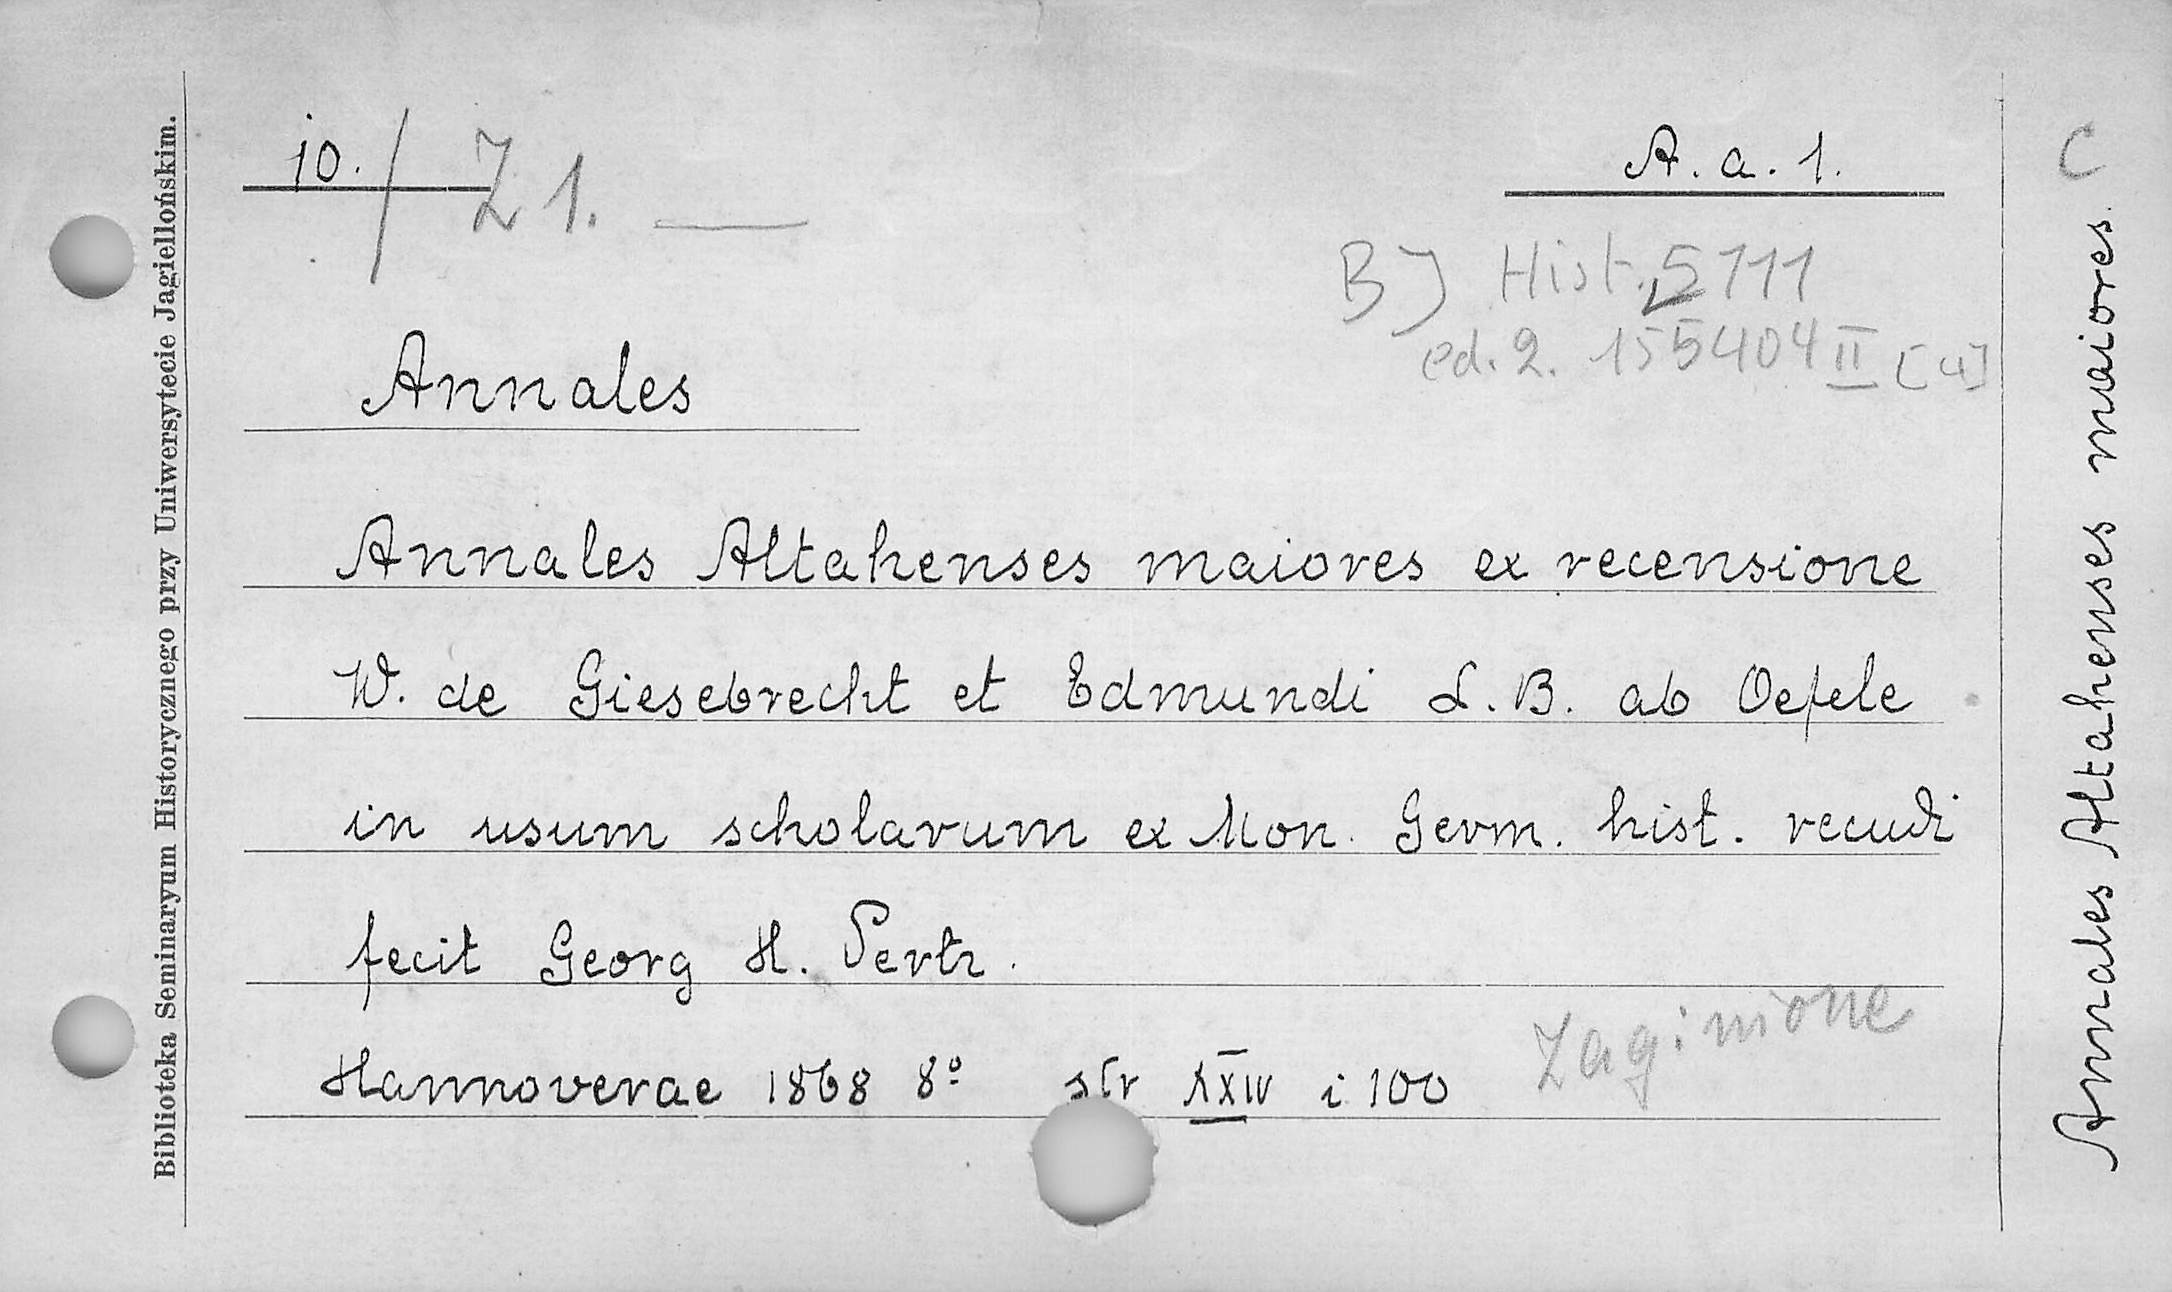 Biblioteka Seminaryum Historycznego przy Uniwersytecie Jagiellońskim.
10. / Z 1. —
A. a. 1.
C
BJ Hist. 5111
ed. 2. 155404 II [4]
Annales
Annales Altahenses maiores ex recensione
W. de Giesebrecht et Edmundi L. B. ab Oefele
in usum scholarum ex Mon. Germ. hist. recudi
fecit Georg H. Pertz.
Hannoverae 1868 8° str XXIV i 100
Zaginione
Annales Altahenses maiores.